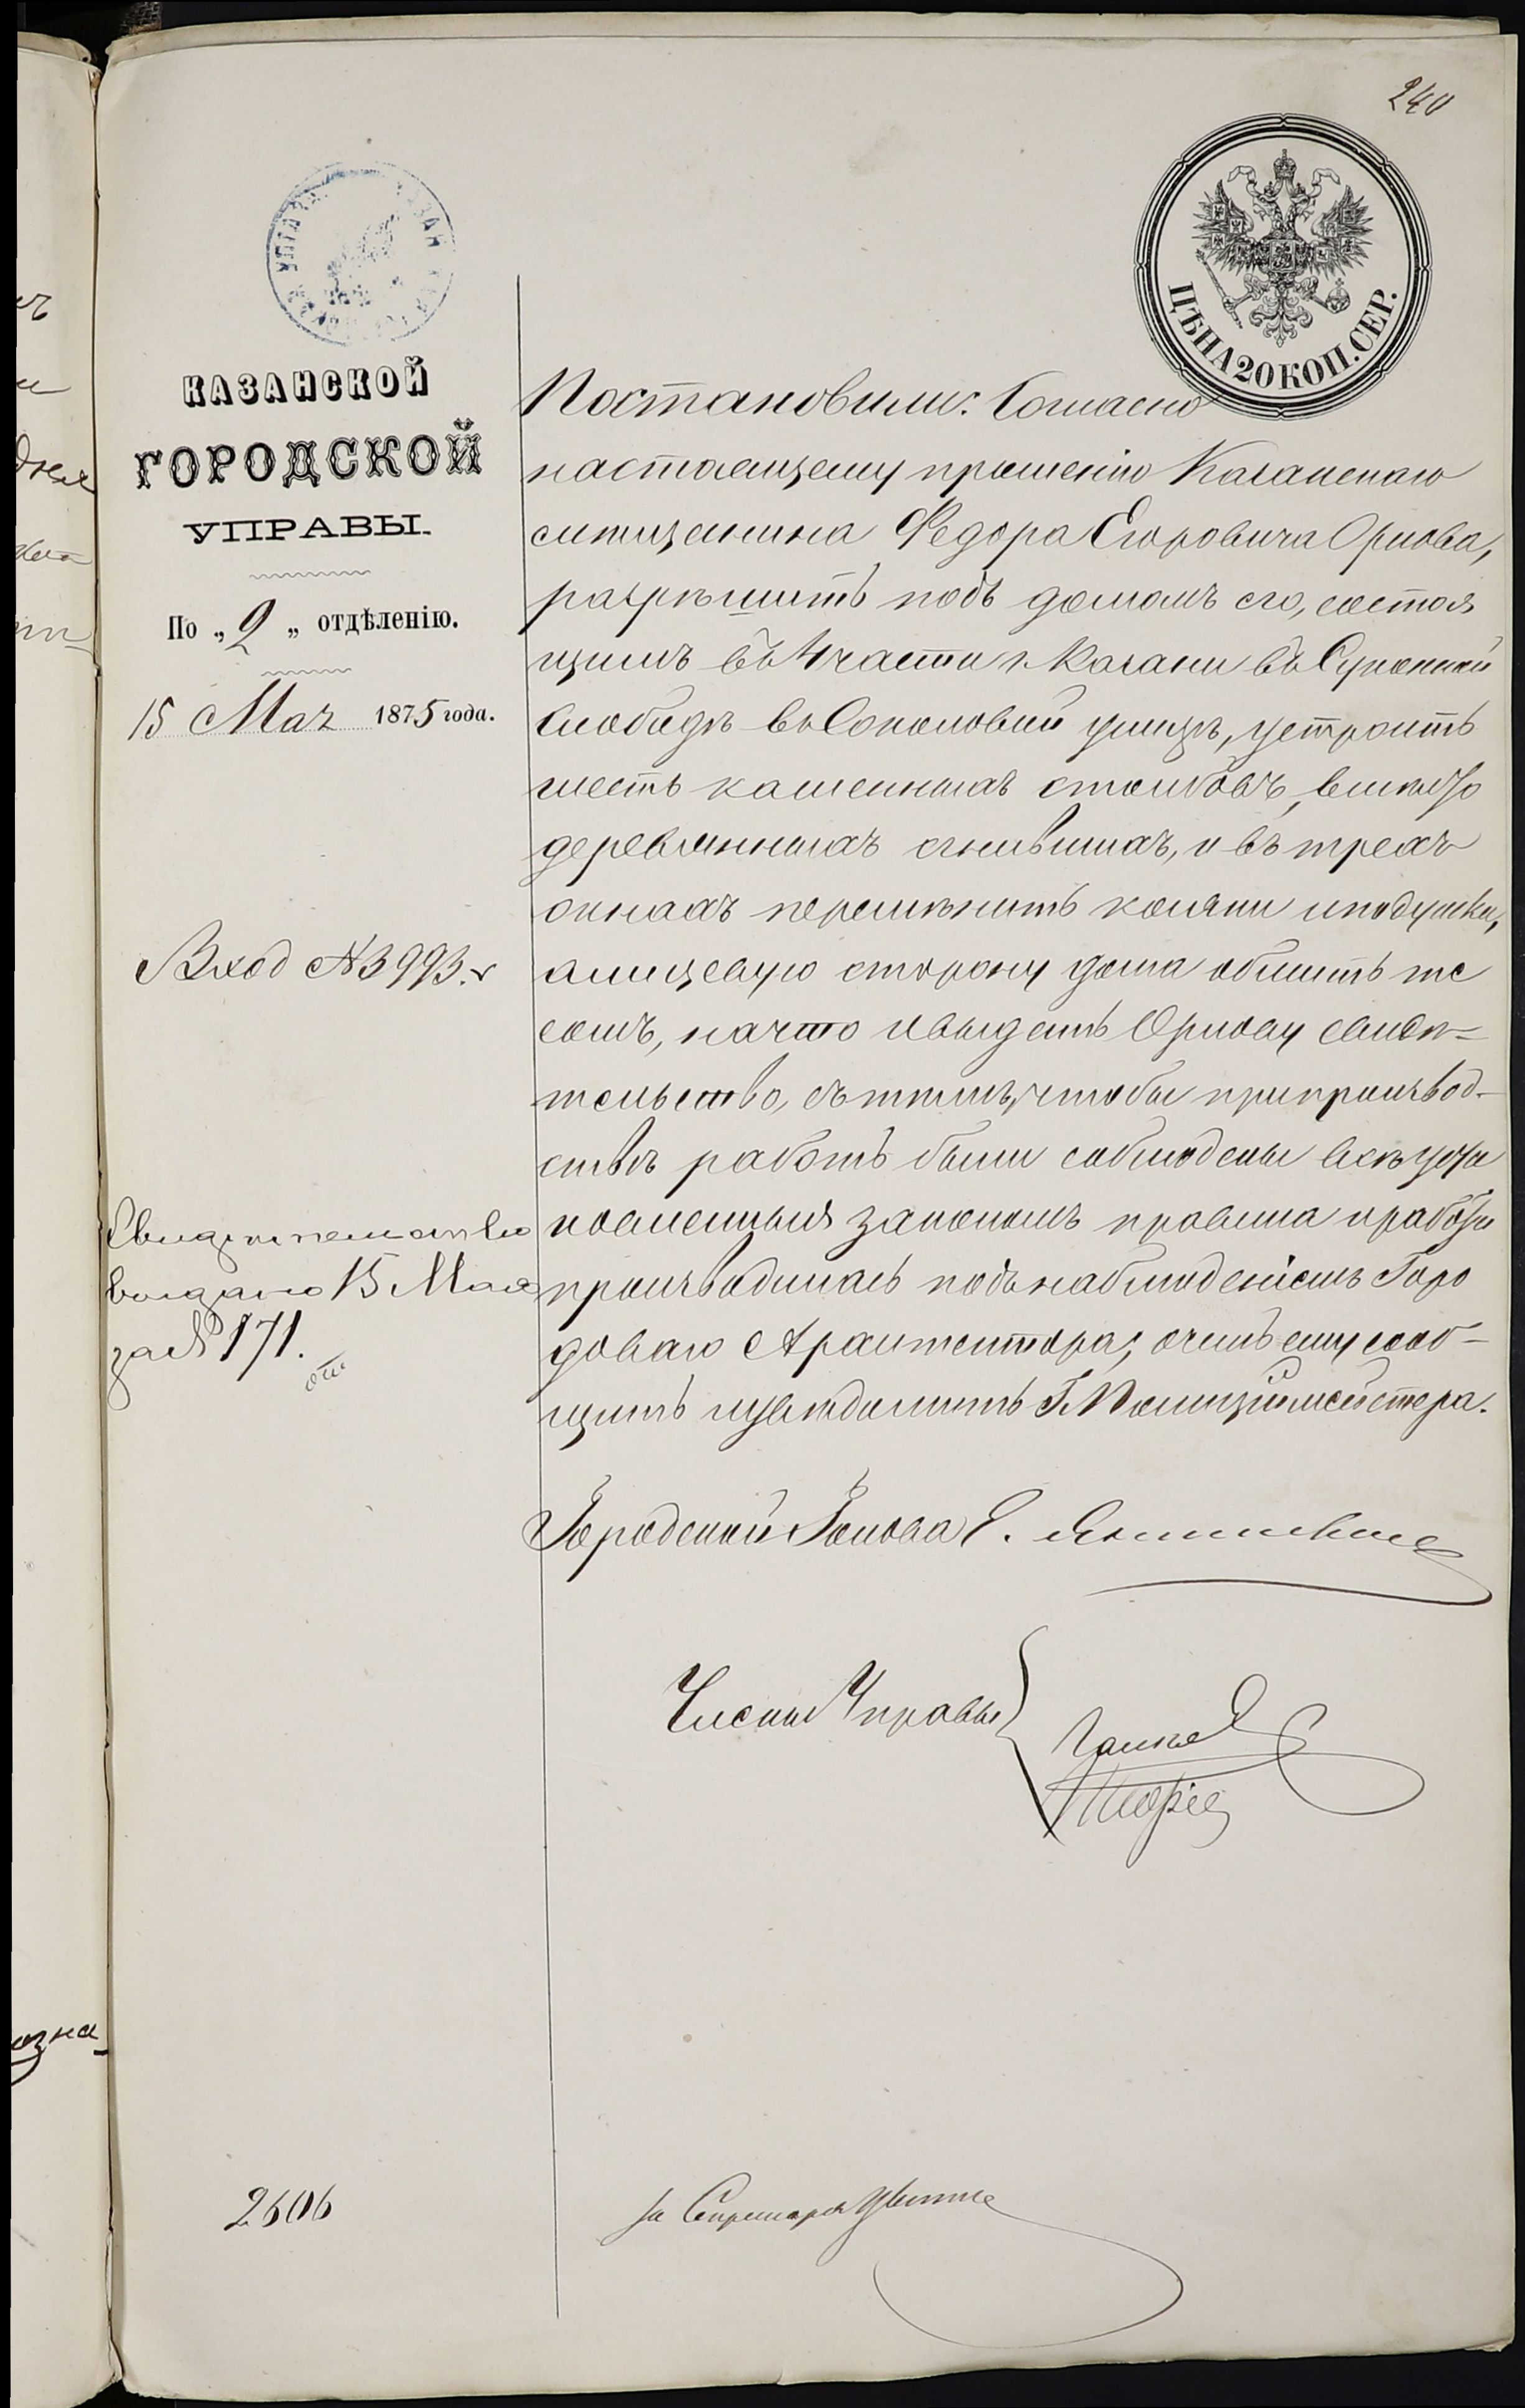 240
ЦѢНА 20 КОП. СЕР.
КАЗАНСКОЙ
ГОРОДСКОЙ
УПРАВЫ.
По „2„ отдѣленію.
15 Мая 1875 года.
Вход №3993.
Свидѣтельство
выдано 15 Мая
за № 171.
Постановили: Согласно
настоящему прошенію Казанскаго
мѣщанина Федора Егоровича Орлова,
разрѣшить подъ домомъ его, состоя
щимъ въ 4 части г. Казани въ Суконной
Слободѣ въ Соколовой улицѣ, устроить
шесть каменныхъ столбовъ, вмѣсто
деревянныхъ сгнившихъ, и въ трехъ
окнахъ перемѣнить косяки и подушки,
а лицевую сторону дома обшить те
сомъ, на что и выдать Орлову свидѣ-
тельство, съ тѣмъ, чтобы при производ-
ствѣ работъ были соблюдены всѣ уста
новленныя закономъ правила и работы
производились подъ наблюденіемъ Горо
доваго Архитектора; о чемъ ему сооб-
щить и увѣдомить Г. Полиціймейстера.
Городской Голова Э. Янишевскій
Члены Управы
2606
За Секретаря